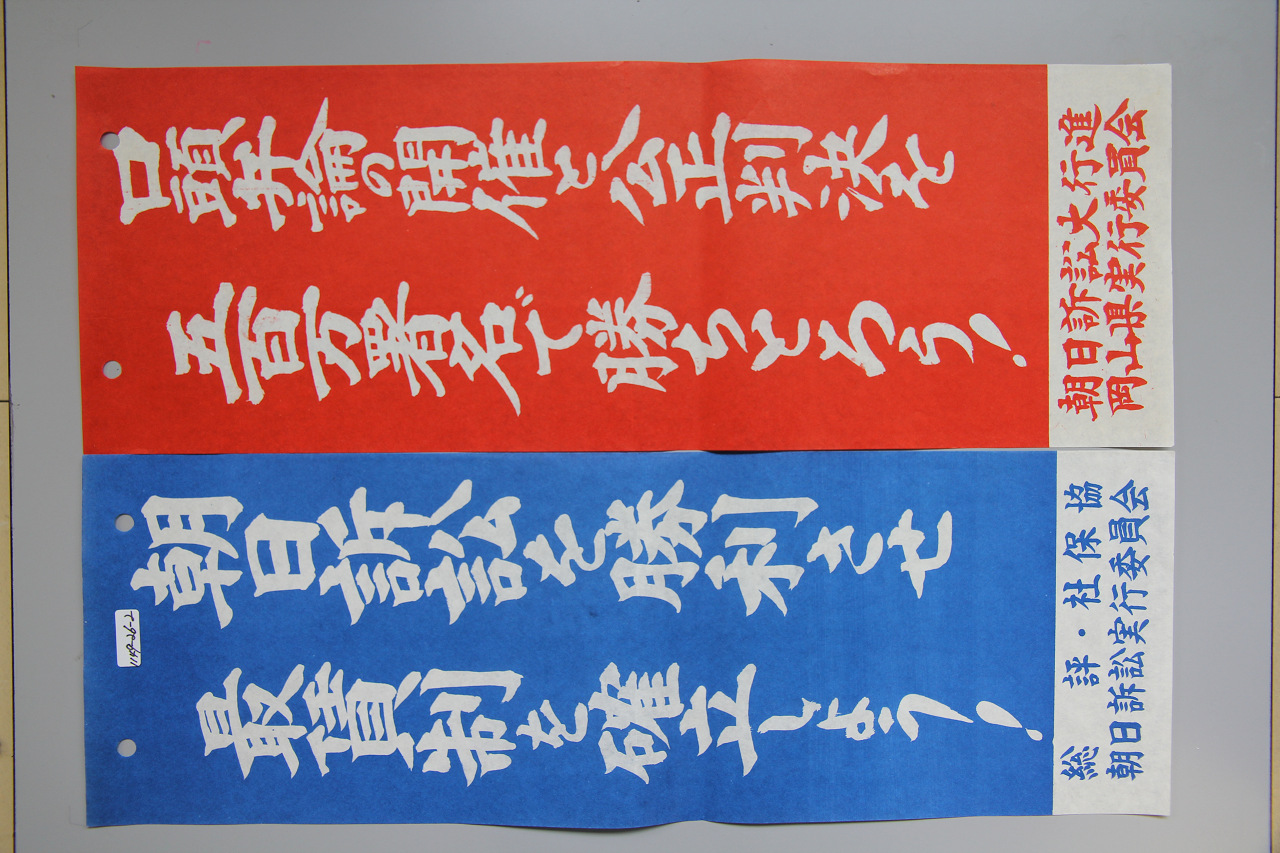 口頭弁論の開催と公正判決を
五百万署名で勝ちとろう!
朝日訴訟大行進
岡山県実行委員会
朝日訴訟を勝利させ
最賃制を確立しよう!
総評・社保協
朝日訴訟実行委員会
1149-26-2